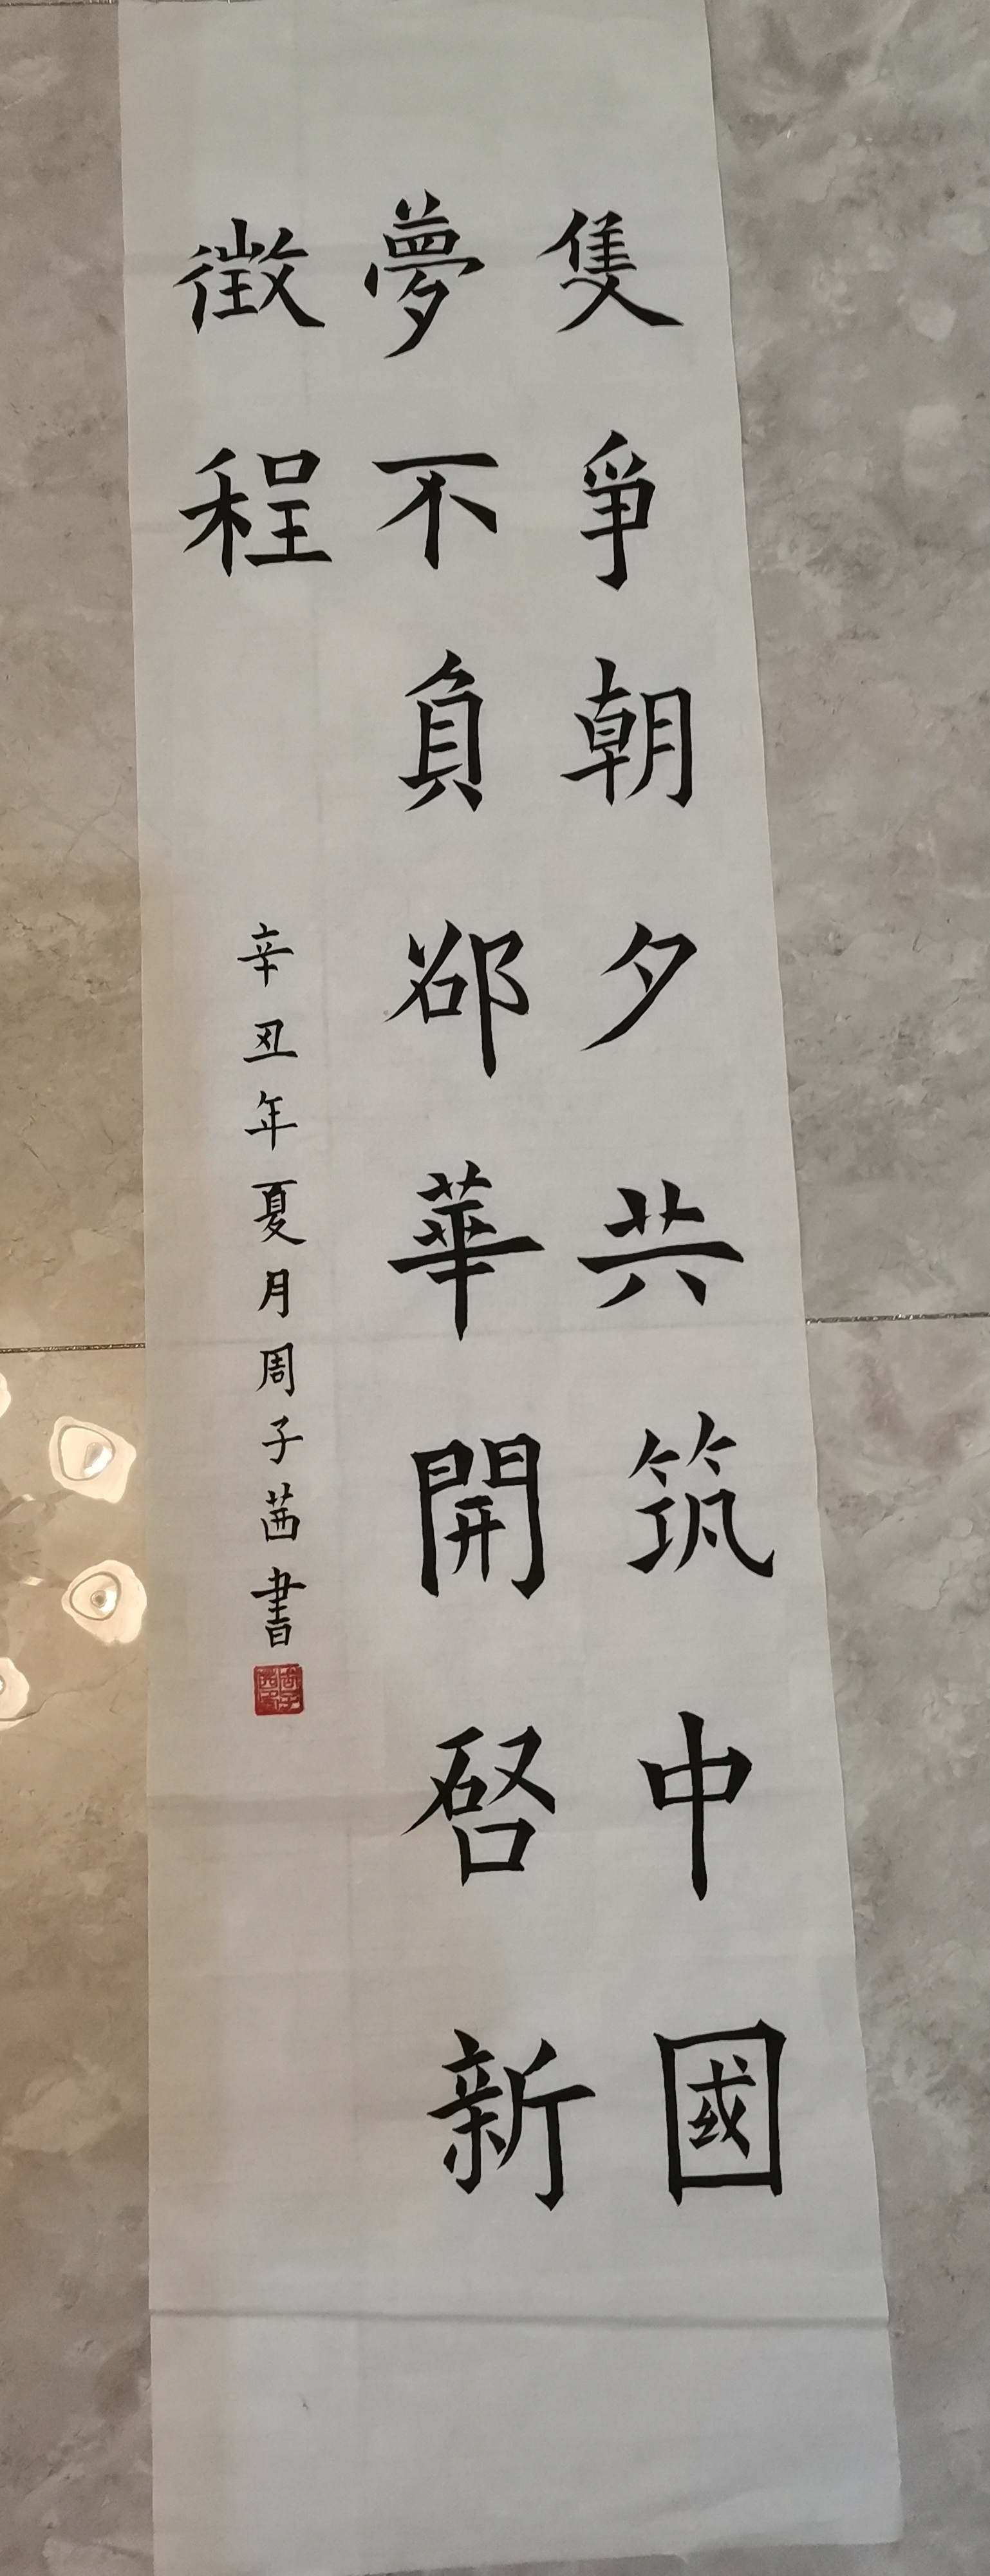 隻爭朝夕共筑中國
夢不負郤華開啓新
徵程
辛丑年夏月周子茜書